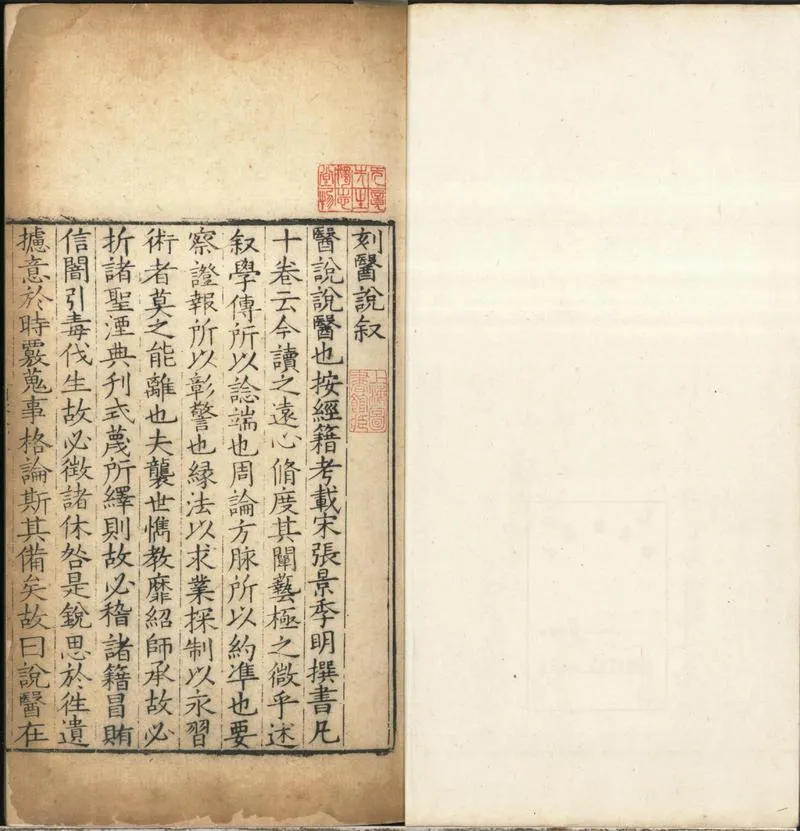 刻醫說叙
醫說說醫也按經籍考載宋張景季明撰書凡
十卷云今讀之遠心脩度其闡藝極之微乎述
叙學傳所以諗端也周論方脉所以約準也要
察證報所以彰警也緣法以求業探制以永習
術者莫之能離也夫襲世憍教靡紹師承故必
折諸聖湮典刋式蔑所繹則故必稽諸籍冒賄
信闇引毒伐生故必徵諸休咎是銳思於徃遺
攄意於時覈蒐事格論斯其備矣故曰說醫在
上海圖
書館臧